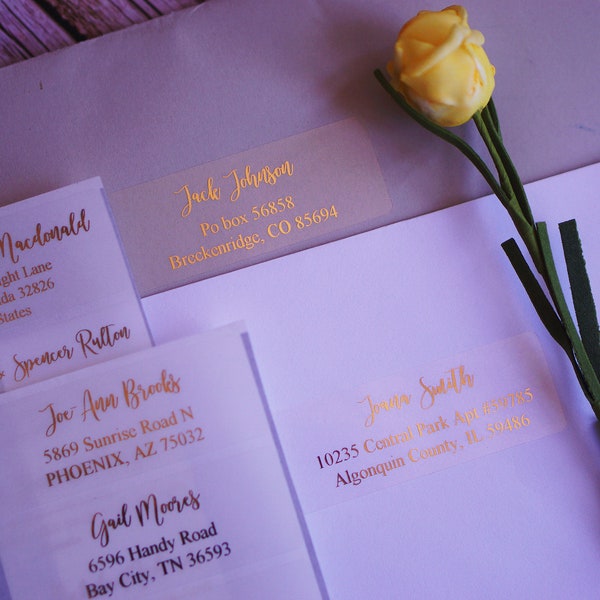 Jack Johnson
Po box 56858
Breckenridge, CO 85694
Macdonald
ight Lane
da 32826
States
& Spencer Rulton
Joe Ann Brooks
5869 Sunrise Road N
PHOENIX, AZ 75032
Gail Moores
6596 Handy Road
Bay City, TN 36593
Joana Smith
10235 Central Park Apt
Algonquin County, IL 59486